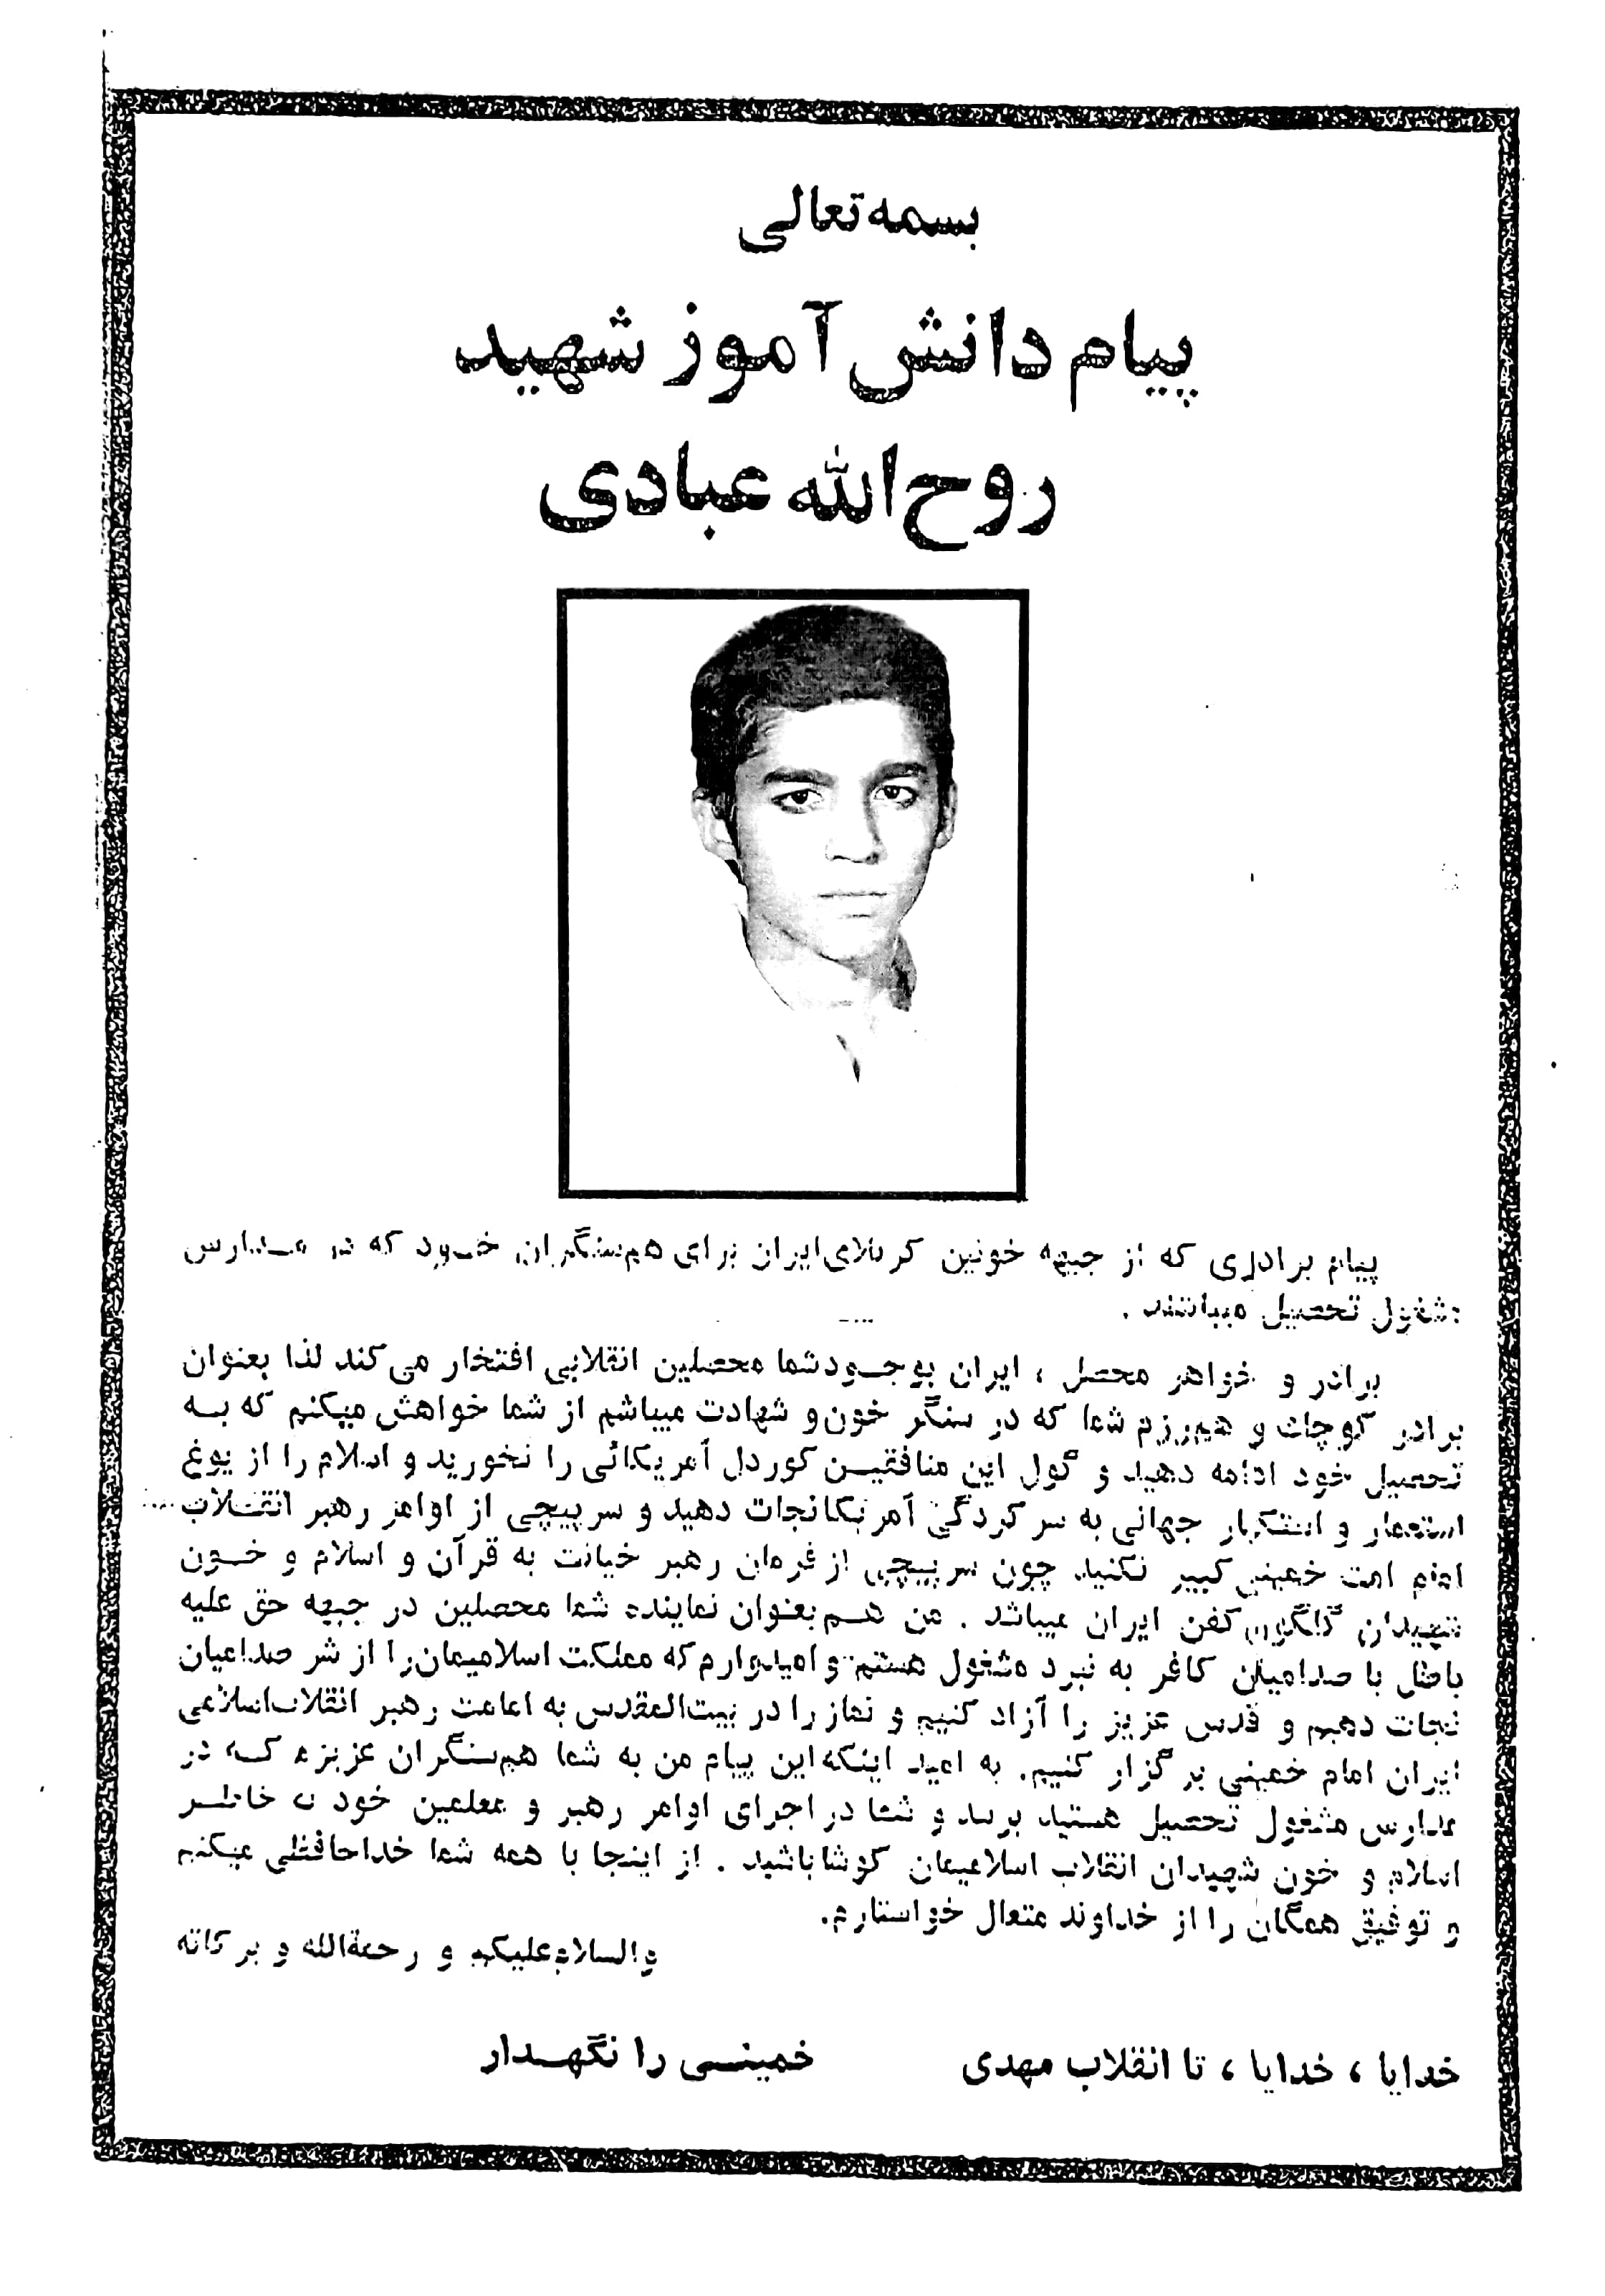 بسمه تعالی
پیام دانش آموز شهید
روح الله عبادی
پیام برادری که از جبهه خونین کربلای ایران برای هم‌سنگران خود که در مدارس
مشغول تحصیل میباشند .
برادر و خواهر محصل ، ایران بوجود شما محصلین انقلابی افتخار می‌کند لذا بعنوان
برادر کوچک و همرزم شما که در سنگر خون و شهادت میباشم از شما خواهش میکنم که به
تحصیل خود ادامه دهید و گول این منافقین کوردل آمریکائی را نخورید و اسلام را از یوغ
استعمار و استکبار جهانی به سرکردگی آمریکا نجات دهید و سرپیچی از اوامر رهبر انقلاب
امام امت خمینی کبیر نکنید چون سرپیچی از فرمان رهبر خیانت به قرآن و اسلام و خون
شهیدان گلگون کفن ایران میباشد . من هم بعنوان نماینده شما محصلین در جبهه حق علیه
باطل با صدامیان کافر به نبرد مشغول هستم و امیدوارم که مملکت اسلامیمان را از شر صدامیان
نجات دهیم و قدس عزیز را آزاد کنیم و نماز را در بیت‌المقدس به امامت رهبر انقلاب اسلامی
ایران امام خمینی برگزار کنیم. به امید اینکه این پیام من به شما هم‌سنگران عزیزم که در
مدارس مشغول تحصیل هستید برسد و شما در اجرای اوامر رهبر و معلمین خود خاطر
اسلام و خون شهیدان انقلاب اسلامیمان کوشا باشید . از اینجا با همه شما خداحافظی میکنم
و توفیق همگان را از خداوند متعال خواستارم.
والسلام علیکم و رحمة‌الله و برکاته
خدایا ، خدایا ، تا انقلاب مهدی خمینی را نگهدار